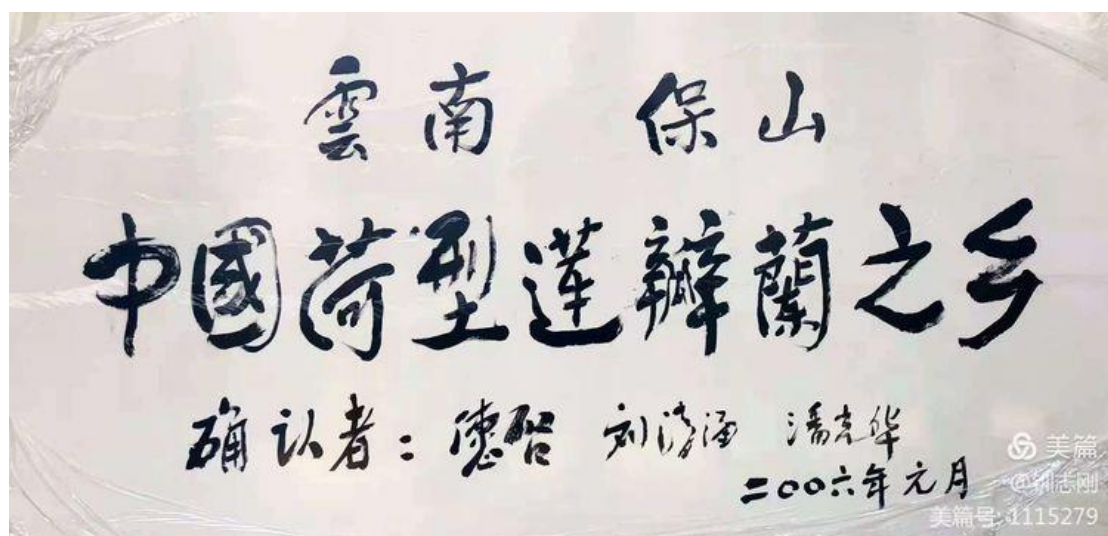 雲南 保山
中國荷型蓮瓣蘭之乡
确认者：德启 刘清涌 潘光华
二〇〇六年元月
美篇
美篇号:1115279